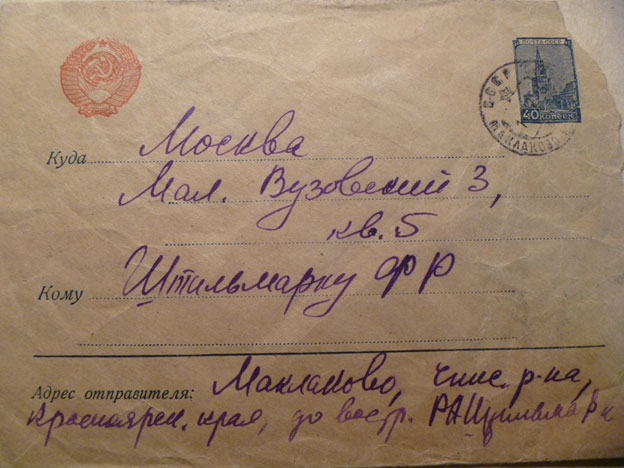 ПОЧТА СССР
40 КОПЕЕК
СССР
МАКЛАКОВО
Куда Москва
Мал. Вузовский 3,
кв. 5
Кому Штильмарку ФР
Адрес отправителя: Маклаково, Енис. р-на,
Красноярск. края, до востр. РАШтильмарк